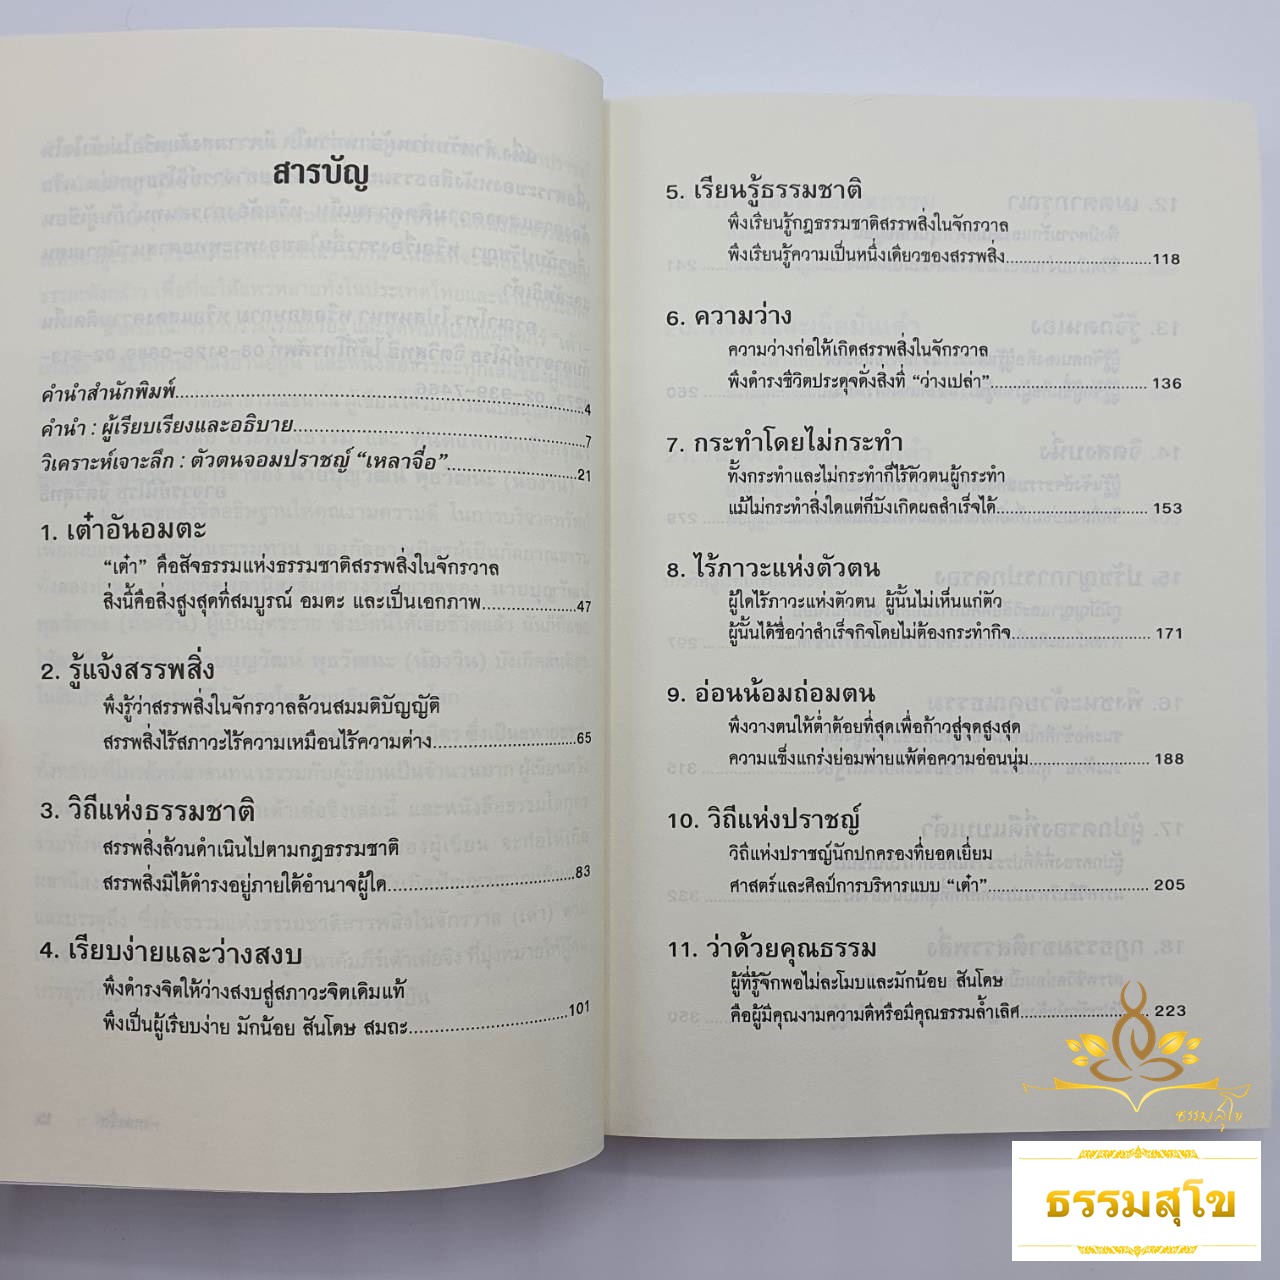 สารบัญ
คำนำสำนักพิมพ์............................................................4
คำนำ : ผู้เรียบเรียงและอธิบาย............................................7
วิเคราะห์เจาะลึก : ตัวตนจอมปราชญ์ “เหลาจื่อ”....................21
1. เต๋าอันอมตะ
“เต๋า” คือสัจธรรมแห่งธรรมชาติสรรพสิ่งในจักรวาล
สิ่งนี้คือสิ่งสูงสุดที่สมบูรณ์ อมตะ และเป็นเอกภาพ................47
2. รู้แจ้งสรรพสิ่ง
พึงรู้ว่าสรรพสิ่งในจักรวาลล้วนสมมติบัญญัติ
สรรพสิ่งไร้สภาวะไร้ความเหมือนไร้ความต่าง.......................65
3. วิถีแห่งธรรมชาติ
สรรพสิ่งล้วนดำเนินไปตามกฎธรรมชาติ
สรรพสิ่งมิได้ดำรงอยู่ภายใต้อำนาจผู้ใด..............................83
4. เรียบง่ายและว่างสงบ
พึงดำรงจิตให้ว่างสงบสู่สภาวะจิตเดิมแท้
พึงเป็นผู้เรียบง่าย มักน้อย สันโดษ สมถะ..........................101
5. เรียนรู้ธรรมชาติ
พึงเรียนรู้กฎธรรมชาติสรรพสิ่งในจักรวาล
พึงเรียนรู้ความเป็นหนึ่งเดียวของสรรพสิ่ง..........................118
6. ความว่าง
ความว่างก่อให้เกิดสรรพสิ่งในจักรวาล
พึงดำรงชีวิตประดุจดั่งสิ่งที่ “ว่างเปล่า”............................ 136
7. กระทำโดยไม่กระทำ
ทั้งกระทำและไม่กระทำก็ไร้ตัวตนผู้กระทำ
แม้ไม่กระทำสิ่งใดแต่ก็บังเกิดผลสำเร็จได้........................... 153
8. ไร้ภาวะแห่งตัวตน
ผู้ใดไร้ภาวะแห่งตัวตน ผู้นั้นไม่เห็นแก่ตัว
ผู้นั้นได้ชื่อว่าสำเร็จกิจโดยไม่ต้องกระทำกิจ......................... 171
9. อ่อนน้อมถ่อมตน
พึงวางตนให้ต่ำต้อยที่สุดเพื่อก้าวสู่จุดสูงสุด
ความแข็งแกร่งย่อมพ่ายแพ้ต่อความอ่อนนุ่ม...................... 188
10. วิถีแห่งปราชญ์
วิถีแห่งปราชญ์นักปกครองที่ยอดเยี่ยม
ศาสตร์และศิลป์การบริหารแบบ “เต๋า”............................. 205
11. ว่าด้วยคุณธรรม
ผู้ที่รู้จักพอไม่ละโมบและมักน้อย สันโดษ
คือผู้มีคุณงามความดีหรือมีคุณธรรมล้ำเลิศ....................... 223
ธรรมสุโข
ธรรมสุโข